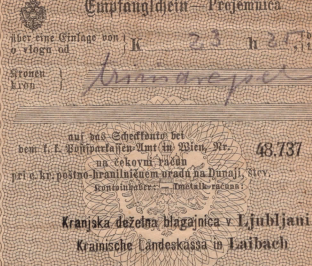 Empfangschein – Prejemnica
über eine Einlage von
o vlogu od
K 23 h 25
Kronen
kron
auf das Scheckkonto bei
dem k. k. Postsparkassen-Amt in Wien, Nr.
48.737
na čekovni račun
pri c. kr. poštno-hranilničnem uradu na Dunaji, štev.
Kontoinhaber: – Imetnik računa:
Kranjska deželna blagajnica v Ljubljani
Krainische Landeskassa in Laibach